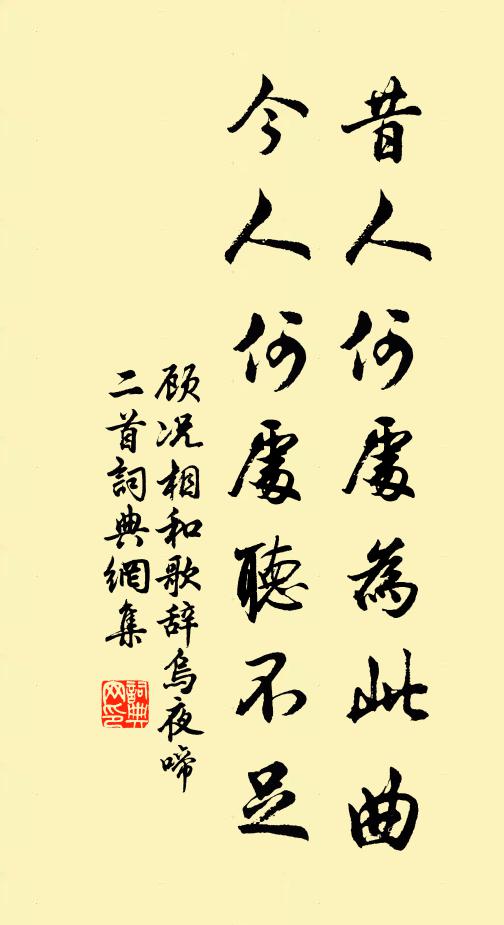 昔人何處為此曲
今人何處聽不足
顾况相和歌辞烏夜啼
二首詞典網集
詞典
网印